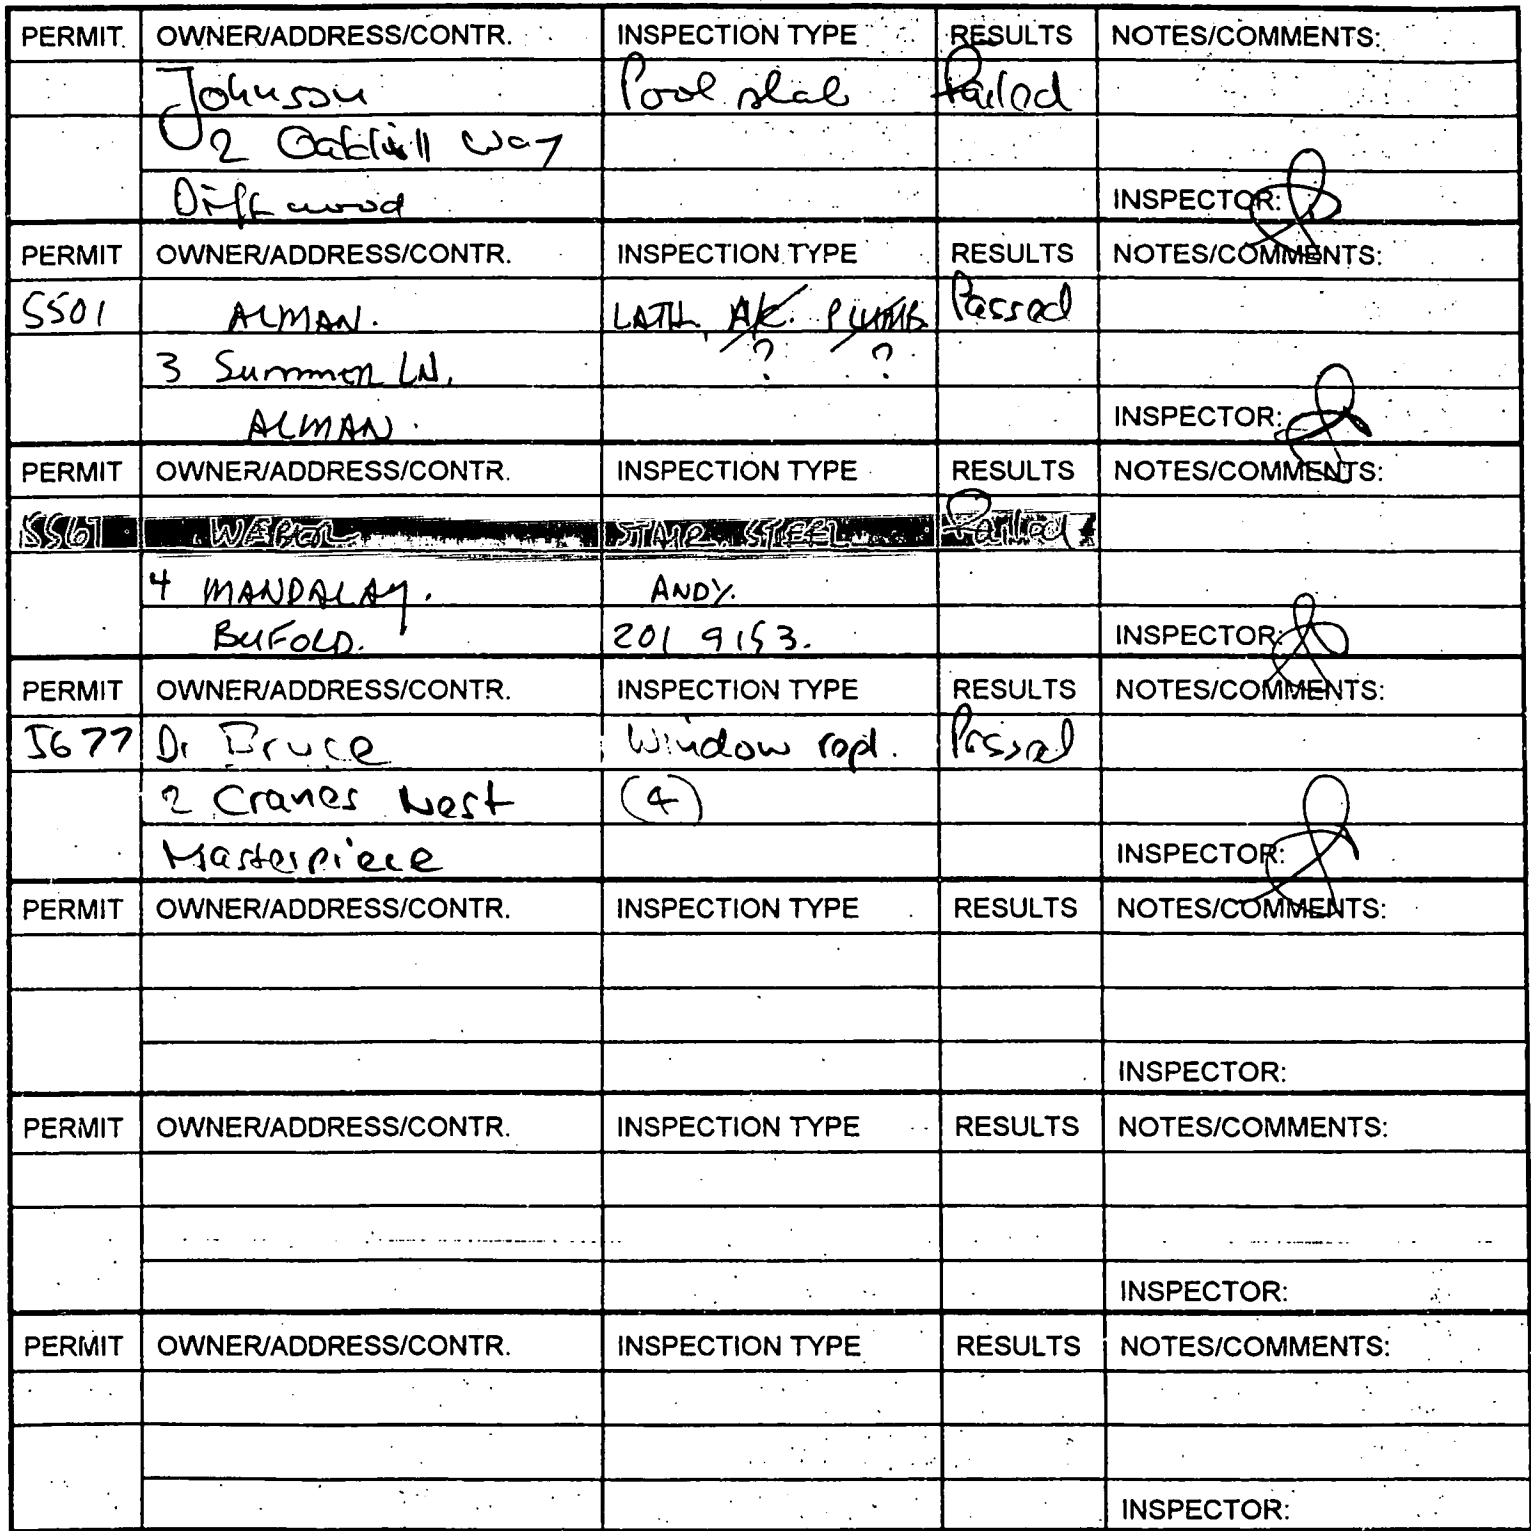 PERMIT OWNER/ADDRESS/CONTR. INSPECTION TYPE RESULTS NOTES/COMMENTS:
Johnson Pool slab
2 way
INSPECTOR:
PERMIT OWNER/ADDRESS/CONTR. INSPECTION TYPE RESULTS NOTES/COMMENTS:
5501 ALMAN. LATH, A/C. PLUMB Passed
3 Summer LN. ? ?
ALMAN. INSPECTOR:
PERMIT OWNER/ADDRESS/CONTR. INSPECTION TYPE RESULTS NOTES/COMMENTS:
5561 STAIR STEEL
4 MANDALAY. ANDY.
BUFOLD. 201 9153. INSPECTOR:
PERMIT OWNER/ADDRESS/CONTR. INSPECTION TYPE RESULTS NOTES/COMMENTS:
5677 Di Bruce Window repl. Passed
2 Cranes Nest (4)
Masterpiece INSPECTOR:
PERMIT OWNER/ADDRESS/CONTR. INSPECTION TYPE RESULTS NOTES/COMMENTS:
INSPECTOR:
PERMIT OWNER/ADDRESS/CONTR. INSPECTION TYPE RESULTS NOTES/COMMENTS:
INSPECTOR:
PERMIT OWNER/ADDRESS/CONTR. INSPECTION TYPE RESULTS NOTES/COMMENTS:
INSPECTOR: